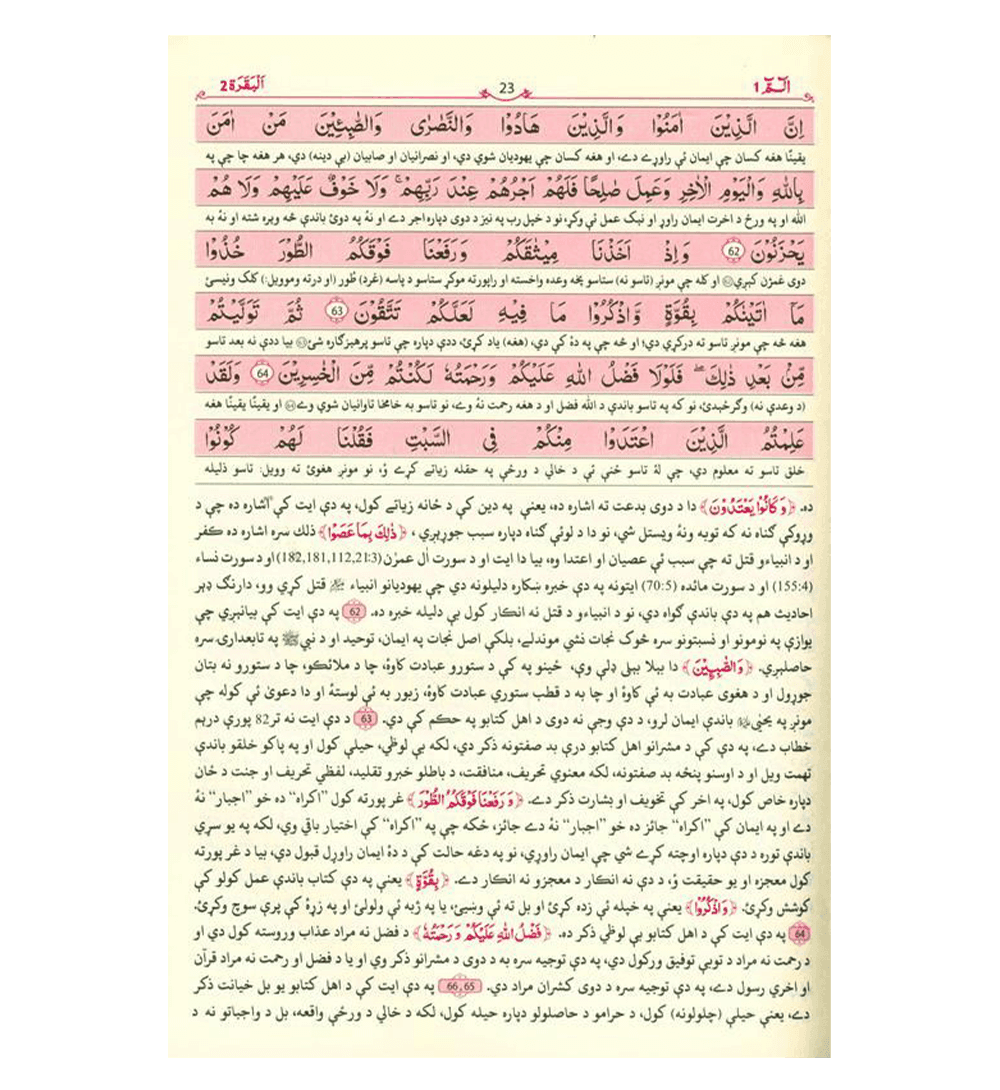 الٓمّٓ 1 23 اَلْبَقَرَة 2
اِنَّ الَّذِيْنَ اٰمَنُوْا وَالَّذِيْنَ هَادُوْا وَالنَّصٰرٰى وَالصّٰبِـِٕيْنَ مَنْ اٰمَنَ
يقينًا هغه کسان چې ايمان ئې راوړے دے، او هغه کسان چې يهوديان شوي دي، او نصرانيان او صابيان (بې دينه) دي، هر هغه چا چې په
بِاللّٰهِ وَالْيَوْمِ الْاٰخِرِ وَعَمِلَ صٰلِحًا فَلَهُمْ اَجْرُهُمْ عِنْدَ رَبِّهِمْ ۚ وَلَا خَوْفٌ عَلَيْهِمْ وَلَا هُمْ
الله او په ورځ د اخرت ايمان راوړو او نېک عمل ئې وکړو، نو د خپل رب په نيز د دوى دپاره اجر دے او نۀ په دوئ باندې څه ويره شته او نۀ به
يَحْزَنُوْنَ 62 وَاِذْ اَخَذْنَا مِيْثٰقَكُمْ وَرَفَعْنَا فَوْقَكُمُ الطُّوْرَ خُذُوْا
دوى غمژن کېږي 62 او کله چې مونږ (تاسو نه) ستاسو پخه وعده واخسته او راپورته موکړ ستاسو د پاسه (غرد) طُور (او درته وموويل:) کلک ونيسئ
مَآ اٰتَيْنٰكُمْ بِقُوَّةٍ وَّاذْكُرُوْا مَا فِيْهِ لَعَلَّكُمْ تَتَّقُوْنَ 63 ثُمَّ تَوَلَّيْتُمْ
هغه څه چې مونږ تاسو ته درکړي دي؛ او څه چې په دۀ کې دي، (هغه) ياد کړئ، ددې دپاره چې تاسو پرهيزګاره شئ 63 بيا ددې نه بعد تاسو
مِّنْۢ بَعْدِ ذٰلِكَ ۖ فَلَوْلَا فَضْلُ اللّٰهِ عَلَيْكُمْ وَرَحْمَتُهٗ لَكُنْتُمْ مِّنَ الْخٰسِرِيْنَ 64 وَلَقَدْ
(د وعدې نه) وګرځېدئ، نو که په تاسو باندې د الله فضل او د هغه رحمت نۀ وے، نو تاسو به خامخا تاوانيان شوي وے 64 او يقينًا يقينًا هغه
عَلِمْتُمُ الَّذِيْنَ اعْتَدَوْا مِنْكُمْ فِى السَّبْتِ فَقُلْنَا لَهُمْ كُوْنُوْا
خلق تاسو ته معلوم دي، چې لۀ تاسو ځنې ئې د خالي د ورځې په حقله زياتے کړے ؤ، نو مونږ هغوئ ته وويل: تاسو ذليله
ده. ﴿وَكَانُوْا يَعْتَدُوْنَ﴾ دا د دوى بدعت ته اشاره ده، يعنې په دين کې د ځانه زياتے کول، په دې ايت کې اشاره ده چې د
وړوکې ګناه نه که توبه ونۀ ويستل شي، نو دا د لوئې ګناه دپاره سبب جوړېږي ، ﴿ذٰلِكَ بِمَا عَصَوْا﴾ ذلك سره اشاره ده کفر
او د انبياءو قتل ته چې سبب ئې عصيان او اعتدا وه، بيا دا ايت او د سورت اٰل عمرٰن (182,181,112,21:3) او د سورت نساء
(155:4) او د سورت مائده (70:5) ايتونه په دې خبره ښکاره دليلونه دي چې يهوديانو انبياء قتل کړي وو، دارنګ ډېر
احاديث هم په دې باندې ګواه دي، نو د انبياءو د قتل نه انکار کول بې دليله خبره ده. 62 په دې ايت کې بيانېږي چې
يوازې په نومونو او نسبتونو سره څوک نجات نشي موندلے، بلکې اصل نجات په ايمان، توحيد او د نبي ﷺ په تابعدارۍ سره
حاصلېږي. ﴿وَالصّٰبِـِٕيْنَ﴾ دا بېلا بېلې ډلې وې، ځينو په کې د ستورو عبادت کاوۀ، چا د ملائکو، چا د ستورو نه بتان
جوړول او د هغوى عبادت به ئې کاوۀ او چا به د قطب ستوري عبادت کاوۀ، زبور به ئې لوستۀ او دا دعوىٰ ئې کوله چې
مونږ په يحيٰى باندې ايمان لرو، د دې وجې نه دوى د اهل کتابو په حکم کې دي. 63 د دې ايت نه تر82 پورې درېم
خطاب دے، په دې کې د مشرانو اهل کتابو درې بد صفتونه ذکر دي، لکه بې لوظي، حيلې کول او په پاکو خلقو باندې
تهمت ويل او د اوسنو پنځه بد صفتونه، لکه معنوي تحريف، منافقت، د باطلو خبرو تقليد، لفظي تحريف او جنت د ځان
دپاره خاص کول، په اخر کې تخويف او بشارت ذکر دے. ﴿وَرَفَعْنَا فَوْقَكُمُ الطُّوْرَ﴾ غر پورته کول "اکراه" ده خو "اجبار" نۀ
دے او په ايمان کې "اکراه" جائز ده خو "اجبار" نۀ دے جائز، ځکه چې په "اکراه" کې اختيار باقي وي، لکه په يو سړي
باندې توره د دې دپاره اوچته کړے شي چې ايمان راوړي، نو په دغه حالت کې د دۀ ايمان راوړل قبول دي، بيا د غر پورته
کول معجزه او يو حقيقت ؤ، د دې نه انکار د معجزو نه انکار دے. ﴿بِقُوَّةٍ﴾ يعنې په دې کتاب باندې عمل کولو کې
کوشش وکړئ. ﴿وَاذْكُرُوْا﴾ يعنې په خپله ئې زده کړئ او بل ته ئې وښيئ، يا په ژبه ئې ولولئ او په زړۀ کې پرې سوچ وکړئ.
64 په دې ايت کې د اهل کتابو بې لوظي ذکر ده. ﴿فَضْلُ اللّٰهِ عَلَيْكُمْ وَرَحْمَتُهٗ﴾ د فضل نه مراد عذاب وروسته کول دي او
د رحمت نه مراد د توبې توفيق ورکول دي، په دې توجيه سره به د دوى د مشرانو ذکر وي او يا د فضل او رحمت نه مراد قرآن
او اخري رسول دے، په دې توجيه سره د دوى کشران مراد دي. 66,65 په دې ايت کې د اهل کتابو يو بل خيانت ذکر
دے، يعنې حيلې (چلولونه) کول، د حرامو د حاصلولو دپاره حيله کول، لکه د خالي د ورځې واقعه، بل د واجباتو نه د